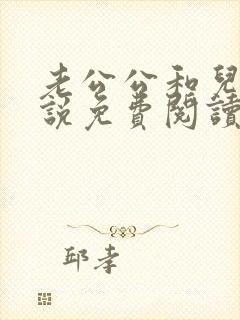 老公公和兒
說免費閱讀
邱孝